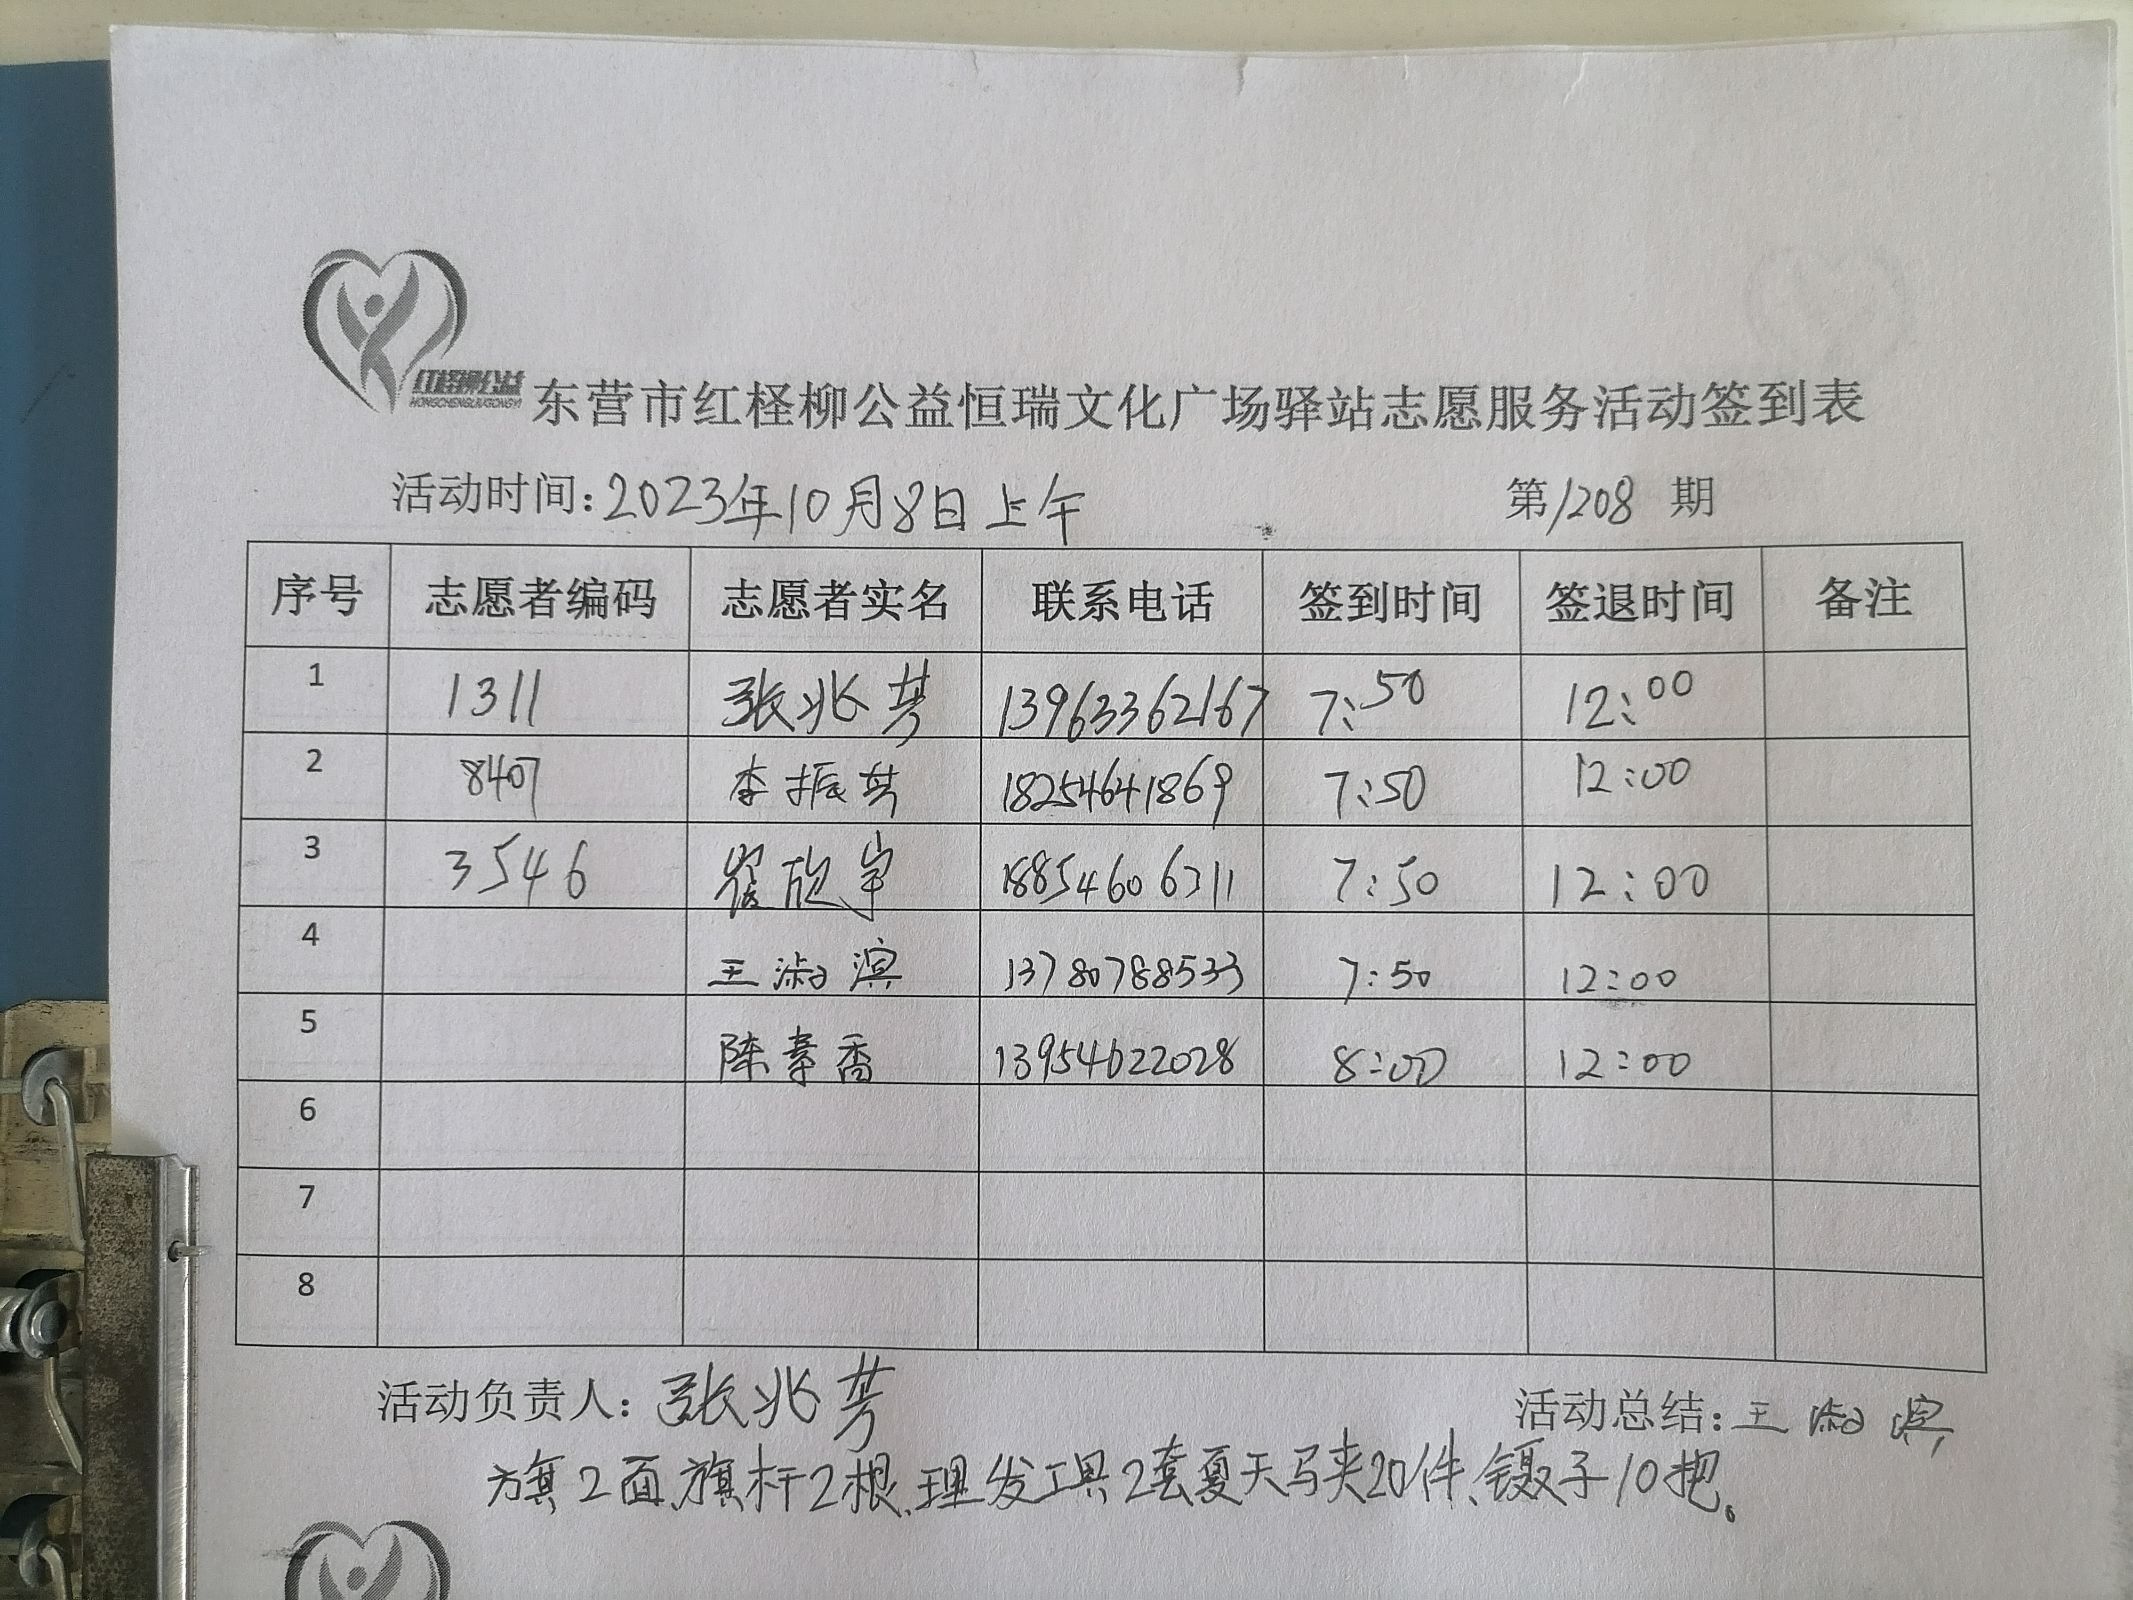 红柽柳公益
HONGCHENGLIUGONGYI
东营市红柽柳公益恒瑞文化广场驿站志愿服务活动签到表
活动时间:2023年10月8日上午 第1208期
序号 志愿者编码 志愿者实名 联系电话 签到时间 签退时间 备注
1 1311 张兆芳 13963362167 7:50 12:00
2 8407 李振英 18254641869 7:50 12:00
3 3546 崔欣宇 18854606311 7:50 12:00
4 王淑滨 13780788533 7:50 12:00
5 陈素香 13954622028 8:00 12:00
6
7
8
活动负责人:张兆芳 活动总结:王淑滨
旗2面、旗杆2根、理发工具2套夏天马夹20件、镊子10把。